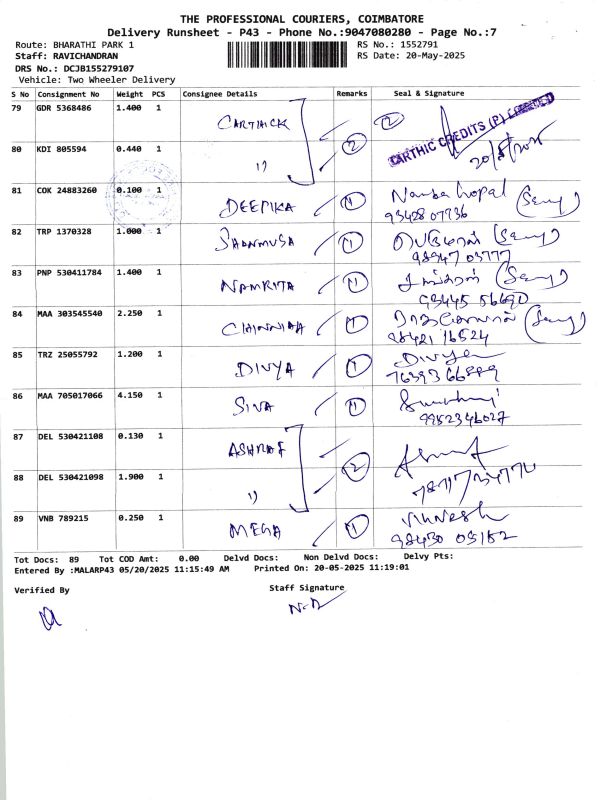 THE PROFESSIONAL COURIERS, COIMBATORE
Delivery Runsheet - P43 - Phone No.:9047080280 - Page No.:7
Route: BHARATHI PARK 1 RS No.: 1552791
Staff: RAVICHANDRAN RS Date: 20-May-2025
DRS No.: DCJB155279107
Vehicle: Two Wheeler Delivery
S No Consignment No Weight PCS Consignee Details Remarks Seal & Signature
79 GDR 5368486 1.400 1 CARTHICK 2 CARTHIC CREDITS (P) LIMITED
80 KDI 805594 0.440 1 〃 2 20/5/2025
81 COK 24883260 0.100 1 DEEPIKA 1
82 TRP 1370328 1.000 1 SHANMUGA 1
83 PNP 530411784 1.400 1 NAMRITA 1
84 MAA 303545540 2.250 1 CHINNIAH 1
85 TRZ 25055792 1.200 1 DIVYA 1 Divya
86 MAA 705017066 4.150 1 SIVA 1
9952346027
87 DEL 530421108 0.130 1 ASHRAF
88 DEL 530421098 1.900 1 〃 2
89 VNB 789215 0.250 1 MEGA 1
98430 05152
Tot Docs: 89 Tot COD Amt: 0.00 Delvd Docs: Non Delvd Docs: Delvy Pts:
Entered By :MALARP43 05/20/2025 11:15:49 AM Printed On: 20-05-2025 11:19:01
Verified By Staff Signature